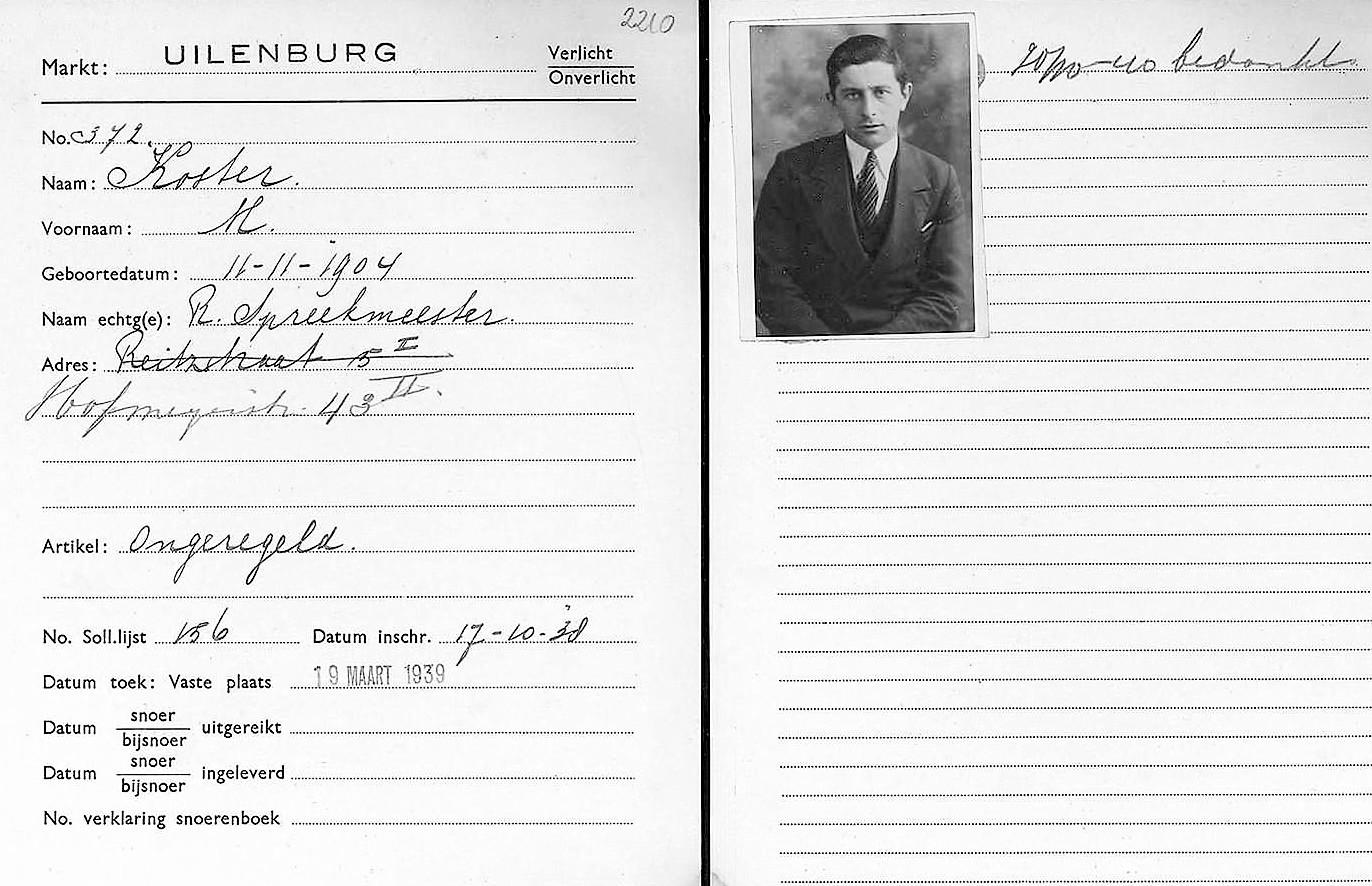 2210
Markt: UILENBURG Verlicht
Onverlicht
No. 372.
Naam: Koster.
Voornaam: M.
Geboortedatum: 11-11-1904
Naam echtg(e): R. Spreekmeester.
Adres: Reitzstraat 5 II
Hofmeyrstr. 43 II.
Artikel: Ongeregeld.
No. Soll.lijst 156 Datum inschr. 17-10-38
Datum toek: Vaste plaats 19 MAART 1939
Datum snoer
bijsnoer uitgereikt
Datum snoer
bijsnoer ingeleverd
No. verklaring snoerenboek
bedankt